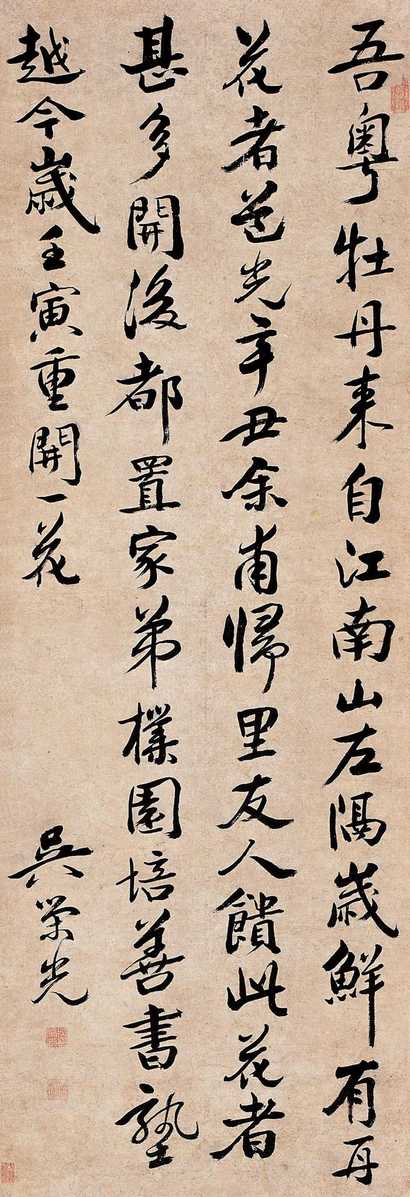 吾粵牡丹來自江南山左隔歲鮮有再
花者道光辛丑余甫歸里友人饋此花者
甚多開後都置家弟樸園培善書塾
越今歲壬寅重開一花
吳榮光